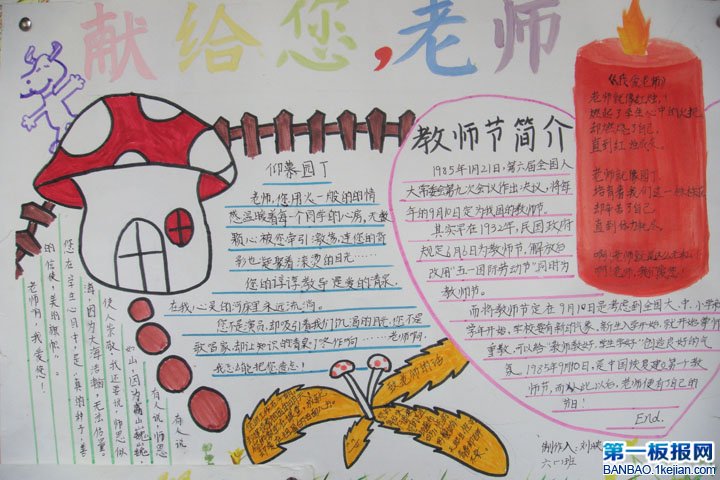 献给您,老师
仰慕园丁
老师,您用火一般的
温暖着每一个同学的心房,无数
颗心被您牵引激荡,连您的
也凝聚着滚烫的目光……
您的谆谆教导
在我心灵的河床里永远流淌。
您不是演员,却吸引着我们饥渴的目光,您不是
歌唱家,却让知识的清泉叮咚作响……老师啊,
我怎么能把您遗忘!
有人说,师恩
如山,因为高山巍巍,
使人崇敬。我还要说,师恩似
海,因为大海浩瀚,无法估量。
您在学生心目中,是“真的种子,善
的信使,美的旗帜”。
老师啊,我爱您!
教师节简介
1985年1月21日,第六届全国人
大常委会第九次会议作出决议,将每
年的9月10日定为我国的教师节。
其实早在1932年,民国政府
规定6月6日为教师节,解放后
改用“五一国际劳动节”同时为
教师节。
而将教师节定在9月10日是考虑到全国大、中、小学
学年开始,学校要有新的气象。新生入学开始,就开始尊
重教,可以给“教师教好,学生学好”创造良好的气
氛。1985年9月10日,是中国恢复建立第一个教
师节,而从此以后,老师便有了自己的
节日!
End.
老师就像红烛,
燃起了学生心中的火把,
却燃烧了自己,
直到
老师就像园丁
培育着我们这一
却辛苦了自己,
直到
啊!老师
啊!老师,我们
致老师的话
制作人:刘
六(一)班
第一板报网
BANBAO.1kejian.com